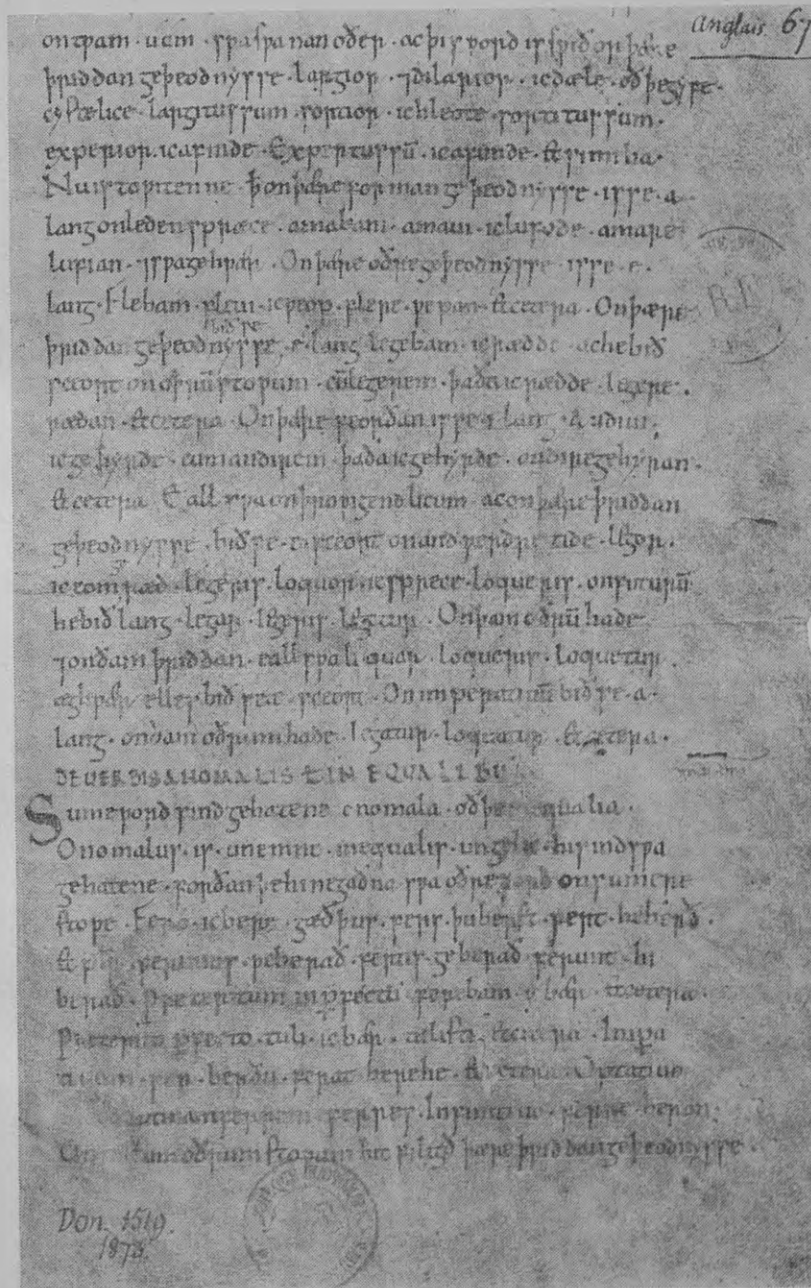 anglais 67
on tƿam · uem · sƿa sƿa nan oðer · ac þis ƿord is sƿiðor þære
þriddan geþeodnysse · largior · ⁊ dilarior · ic dæle oððe gyfe ·
cystelice · largitus sum · sortior · ic hleote · sortitus sum ·
experior · ic afinde · Expertus sū · ic afunde · & rum ba ·
Nu is to ƿitenne þ on þære forman geþeodnysse · is se · a ·
lang on leden spræce · amabam · amaui · ic lufode · amare
lufian · ⁊ sƿa gehƿær · On þære oðre geþeodnysse · is se · e ·
lang · flebam · fleui · ic ƿeop · flere · ƿepan · & cetera · On þære
þriddan geþeodnysse · e · lang legebam · ic rædde · ac he bið
sceort on oþrū stopum · cū legerem · þaða ic rædde · legere ·
rædan · & cetera · On þære feorðan is se · i · lang · Audiui ·
ic gehyrde · cum audirem · þaða ic gehyrde · audire gehyran ·
& cetera · Eall sƿa on þroƿigendlicum · ac on þære þriddan
geþeodnysse · bið se · e · sceort on andƿerdre tide · legor ·
ic eom ræd · legeris · loquor · ic sprece · loqueris · on futurū
he bið lang · legar · legeris · legetur · On þam oðrū hade
⁊ on ðam þriddan · eall sƿa loquar · loqueris · loquetur ·
æghƿær elles bið se e · sceort · On imperatiuū bið se · a ·
lang · on ðam oðrum hade · legatur · loquatur · & cetera ·
DE UERBIS ANOMALIS & INEQUALIBUS
Sume ƿord sind gehatene anomala · oððe inequalia ·
Anomalus · is · unemne · inequalis · ungelic · hi sind sƿa
gehatene · forðan þe hi ne gað na sƿa oðre ƿord on sumere
stoƿe · Fero · ic bere · gæð þus · fers · þu berst · fert · he berð ·
& plr · ferimus · ƿe berað · fertis · ge berað · ferunt · hi
berað · Preteritum inperfectū · ferebam · ic bær · & cetera ·
Preterito perfecto · tuli · ic bær · tulisti · & cetera · Impa
tiuum · fer · ber ðu · ferat · bere he · & cetera · Optatiuo
utinam ferrem · ferres · Infinitiuo · ferre · beron ·
On eallum oðrum stoƿum hit filigð þære þriddan geþeodnysse ·
Don. 1519.
1873.